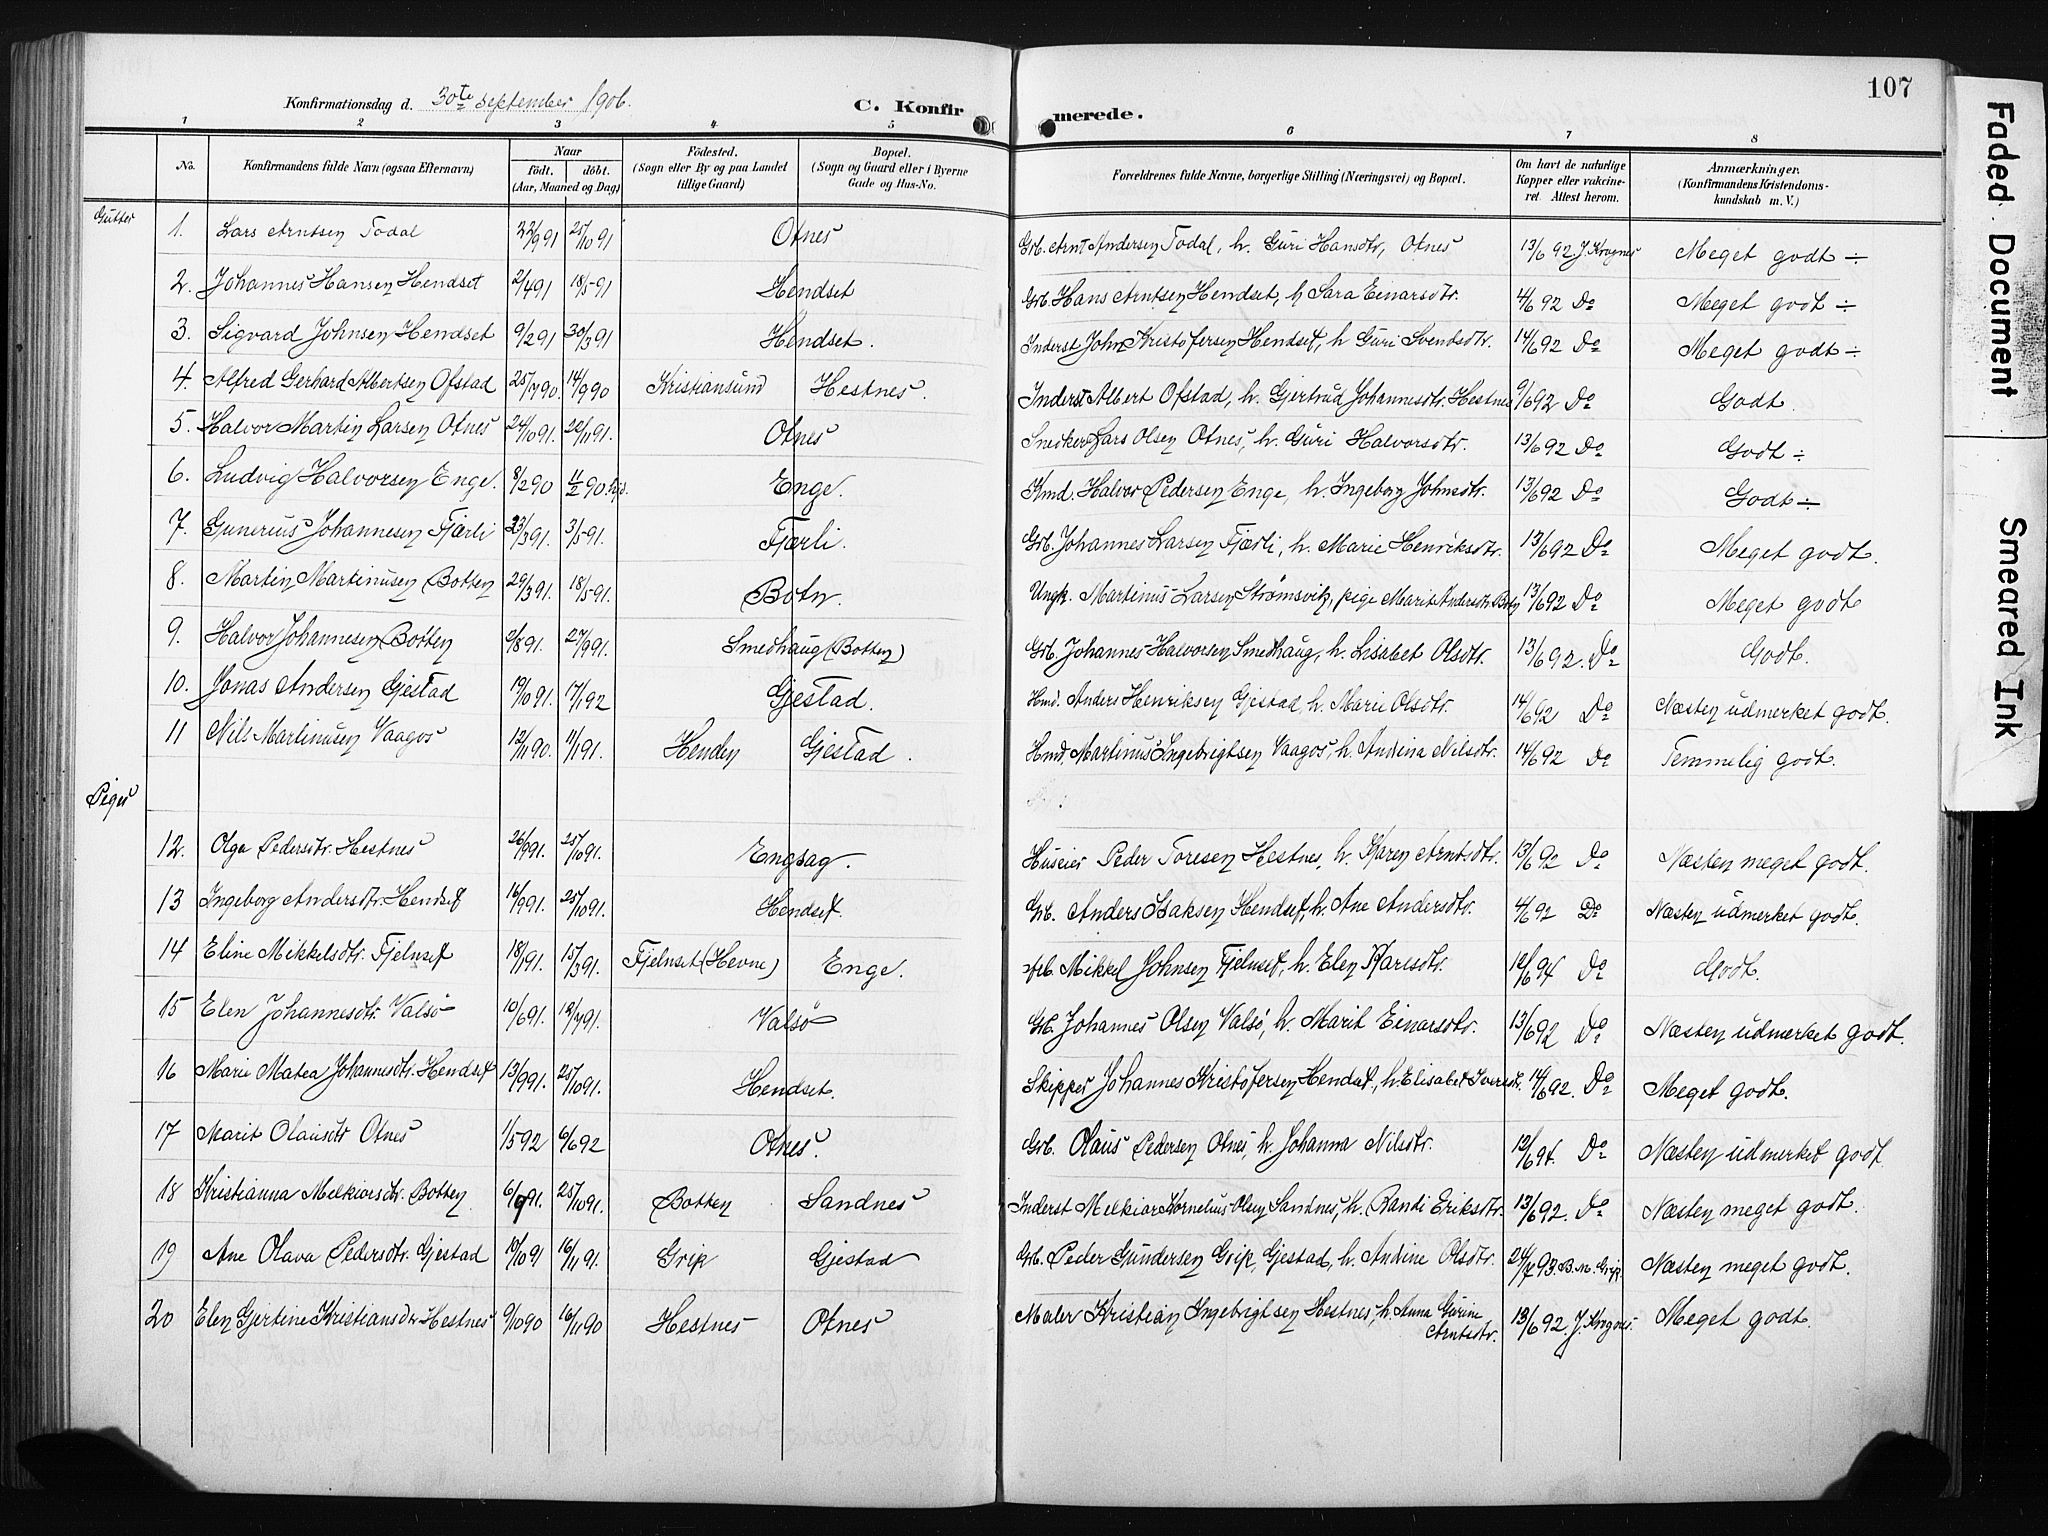 107
Konfirmationsdag d. 30te september 1906.
C. Konfirmerede.
1 2 3 4 5 6 7 8
No. | Konfirmandens fulde Navn (ogsaa Efternavn) | Naar født. døbt. (Aar, Maaned og Dag) | Födested. (Sogn eller By og paa Landet tillige Gaard) | Bopæl. (Sogn og Gaard eller i Byerne Gade og Hus-No. | Forældrenes fulde Navne, borgerlige Stilling (Næringsvei) og Bopæl. | Om havt de naturlige Kopper eller vakcineret. Attest herom. | Anmærkninger. (Konfirmandens Kristendomskundskab m. V.)
Gutter
1. Lars Arntsen Todal 22/9 91 25/10 91 Otnes Grb. Arnt Andersen Todal, h. Guri Hansdtr, Otnes 13/6 92. J. Krognes Meget godt ÷
2. Johannes Hansen Hendset 2/4 91 18/5 91 Hendset Grb. Hans Arntsen Hendset, h Sara Einarsdtr. 4/6 92 Do Meget godt ÷
3. Sigvard Johnsen Hendset 9/2 91 30/3 91 Hendset. Inderst John Kristofersen Hendset, h Guri Svendsdtr. 14/6 92 Do Meget godt ÷
4. Alfred Gerhard Albertsen Ofstad 25/7 90 14/9 90 Kristiansund Hestnes. Inderst Albert Ofstad, h. Gjertrud Johannesdtr. Hestnes 9/6 92 Do Godt.
5. Halvor Martin Larsen Otnes 24/10 91. 22/11 91. Otnes Snedker Lars Olsen Otnes, h. Guri Halvorsdtr. 13/6 92 Do Godt ÷
6. Ludvig Halvorsen Enge. 8/2 90 11/2 90. Enge. Kmd. Halvor Pedersen Enge, h. Ingeborg Johnsdtr. 13/6 92 Do Godt ÷
7. Gunerius Johannesen Fjærli 23/3 91. 3/5 91. Fjærli. Grb. Johannes Larsen Fjærli, h. Marie Henriksdtr. 13/6 92 Do Meget godt.
8. Martin Martinusen Botten 29/3 91. 18/5 91. Botn. Ungk. Martinus Larsen Strømsvik, pige Marit Andersdtr. Botn 13/6 92 Do Meget godt
9. Halvor Johannesen Botten 2/8 91. 27/9 91. Smedhaug (Botten) Grb. Johannes Halvorsen Smedhaug, h. Lisabet Olsdtr. 13/6 92. Do Godt.
10. Jonas Andersen Gjestad 19/10 91. 17/1 92 Gjestad. Hmd. Anders Henriksen Gjestad, h. Marie Olsdtr. 14/6 92 Do Næsten udmerket godt.
11 Nils Martinusen Vaagos 12/11 90. 11/1 91. Henden Gjestad. Hmd. Martinus Ingebrigtsen Vaagos, h. Andina Nilsdtr. 14/6 92 Do Temmelig godt.
Piger
12. Olga Pedersdtr. Hestnes 26/9 91. 25/10 91. Engsag. Huseier Peder Toresen Hestnes, h. Karen Arntsdtr. 13/6 92 Do Næsten meget godt.
13 Ingeborg Andersdtr. Hendset 16/9 91. 25/10 91. Hendset. Grb. Anders Isaksen Hendset, h. Ane Andersdtr. 4/6 92 Do Næsten udmerket godt.
14 Eline Mikkelsdtr. Fjelnset 18/1 91. 15/3 91. Fjelnset (Hevne) Enge. Mikkel Johnsen Fjelnset, h. Elen Karlsdtr. 12/6 94 Do Godt.
15 Elen Johannesdtr. Valsø 10/6 91. 12/7 91. Valsø Grb. Johannes Olsen Valsø, h. Marit Einarsdtr. 13/6 92 Do Næsten udmerket godt.
16 Marie Matea Johannesdtr. Hendset 13/9 91. 25/10 91. Hendset. Skipper Johannes Kristofersen Hendset, h. Elisabet Iversdtr. 14/6 92. Do Meget godt.
17 Marit Olausdtr Otnes 1/5 92 6/6 92 Otnes. Grb. Olaus Pedersen Otnes, h. Johanna Nilsdtr. 12/6 94. Do Næsten udmerket godt
18 Kristianna Melkiorsdtr. Botten 6/9 91. 25/10 91. Botten Sandnes Inderst Melkior Kornelius Olsen Sandnes, h. Randi Eriksdtr. 13/6 92. Do Næsten meget godt.
19 Ane Olava Pedersdtr. Gjestad 10/10 91 16/11 91. Grip Gjestad Grb. Peder Gundersen Grip, Gjestad, h. Andine Olsdtr. 24/7 93. B.M. Grip. Næsten meget godt.
20 Elen Gjertine Kristiansdtr Hestnes 9/10 90 16/11 90 Hestnes Otnes Maler Kristian Ingebrigtsen Hestnes, h. Anna Gurine Arntsdtr. 13/6 92. J. Krognes. Meget godt.
Faded Document Smeared Ink